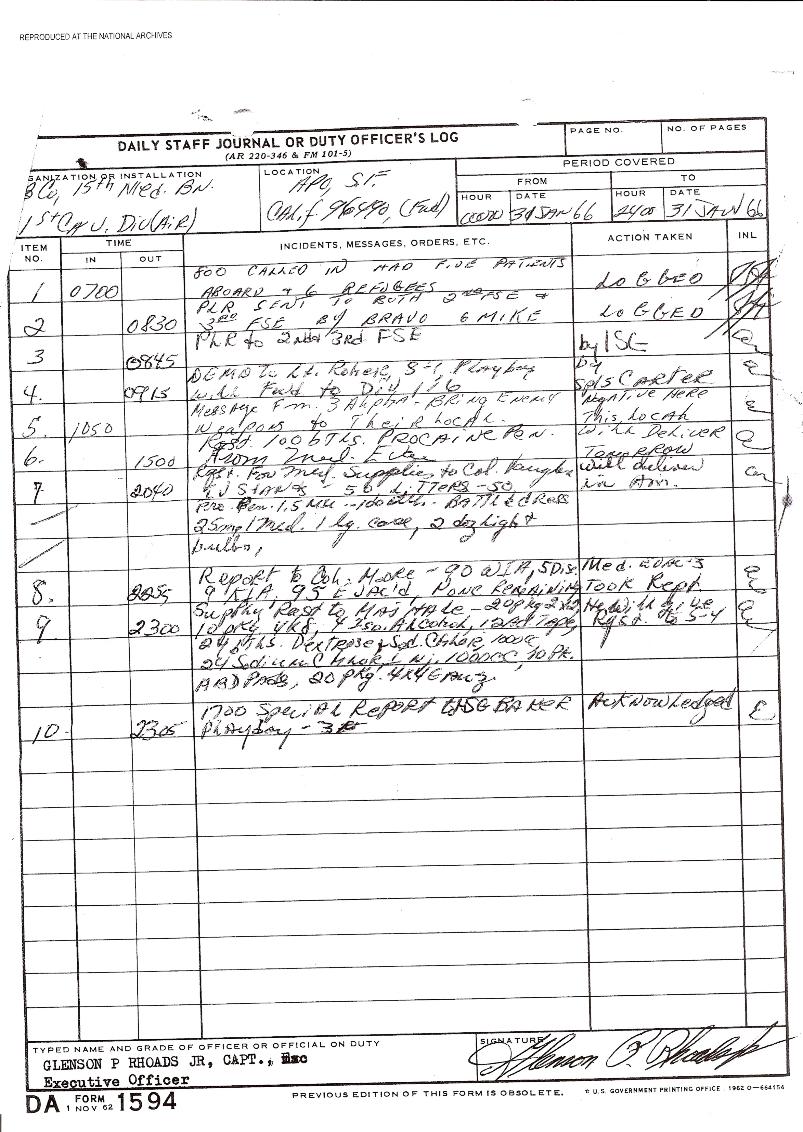 REPRODUCED AT THE NATIONAL ARCHIVES
DAILY STAFF JOURNAL OR DUTY OFFICER'S LOG
(AR 220-346 & FM 101-5)
PAGE NO.
NO. OF PAGES
PERIOD COVERED
GANIZATION OR INSTALLATION
B Co, 15th Med. Bn.
1st CAV. Div (AIR)
LOCATION
APO, S.F.
CAlif. 96490, (Fwd)
FROM
TO
HOUR
DATE
HOUR
DATE
31 JAN 66
2400
31 JAN 66
ITEM NO.
TIME
IN
OUT
INCIDENTS, MESSAGES, ORDERS, ETC.
ACTION TAKEN
INL
1 0700 800 CALLED IN HAD FIVE PATIENTS LOGGED
ABOARD & 6 REFUGEES
2 0830 PLR SENT TO BOTH 2nd FSE & LOGGED
3RD FSE BY BRAVO 6 MIKE
3 0845 PLR to 2nd & 3rd FSE by
4. 0915 DEMO to Lt. S-1, Playboy by
will Fwd to Div Sp/5 CARTER
5. 1050 Message Fm. 3 Alpha - BRING ENEMY Negative HERE
Weapons to Their LOCAL. This LOCAL
6. 1500 Rqst. 100 btls. PROCAINE PEN. Will Deliver
From Med. TOMORROW
7 2040 Rqst. For Med. Supplies to Col. will deliver
I.V STANDS - 5 ea. LITTERS - 50 in Am.
Pen. 1.5 - 100 BATTLE dRess
25 1 Med. 1 lg. case, 2 doz light
bulbs,
8. 2255 Report to Col. Moore - 90 WIA, 5 Dis. Med.
9 KIA, 95 EVAC'd, NONE REMAINING TOOK Rept.
9 2300 Supply Rqst to MAJ HALE - 20 pkg 2x2, He Will give
4 Iso. Alcohol, 12 Rd Tape, Rqst. to S-4
24 btls. Dextrose & Sod. Chlor 1000cc
24 Sodium Chlor. Inj. 1000cc, 10 Pk.
ABD PADS, 20 pkg. 4x4 GAUZ
10. 2305 1700 Special Report BAKER Acknowledged
Playboy - 3
TYPED NAME AND GRADE OF OFFICER OR OFFICIAL ON DUTY
GLENSON P RHOADS JR, CAPT.,
Executive Officer
SIGNATURE
Glenson P. Rhoads Jr
DA FORM 1 NOV 62 1594
PREVIOUS EDITION OF THIS FORM IS OBSOLETE.
☆ U.S. GOVERNMENT PRINTING OFFICE: 1962 O—664154